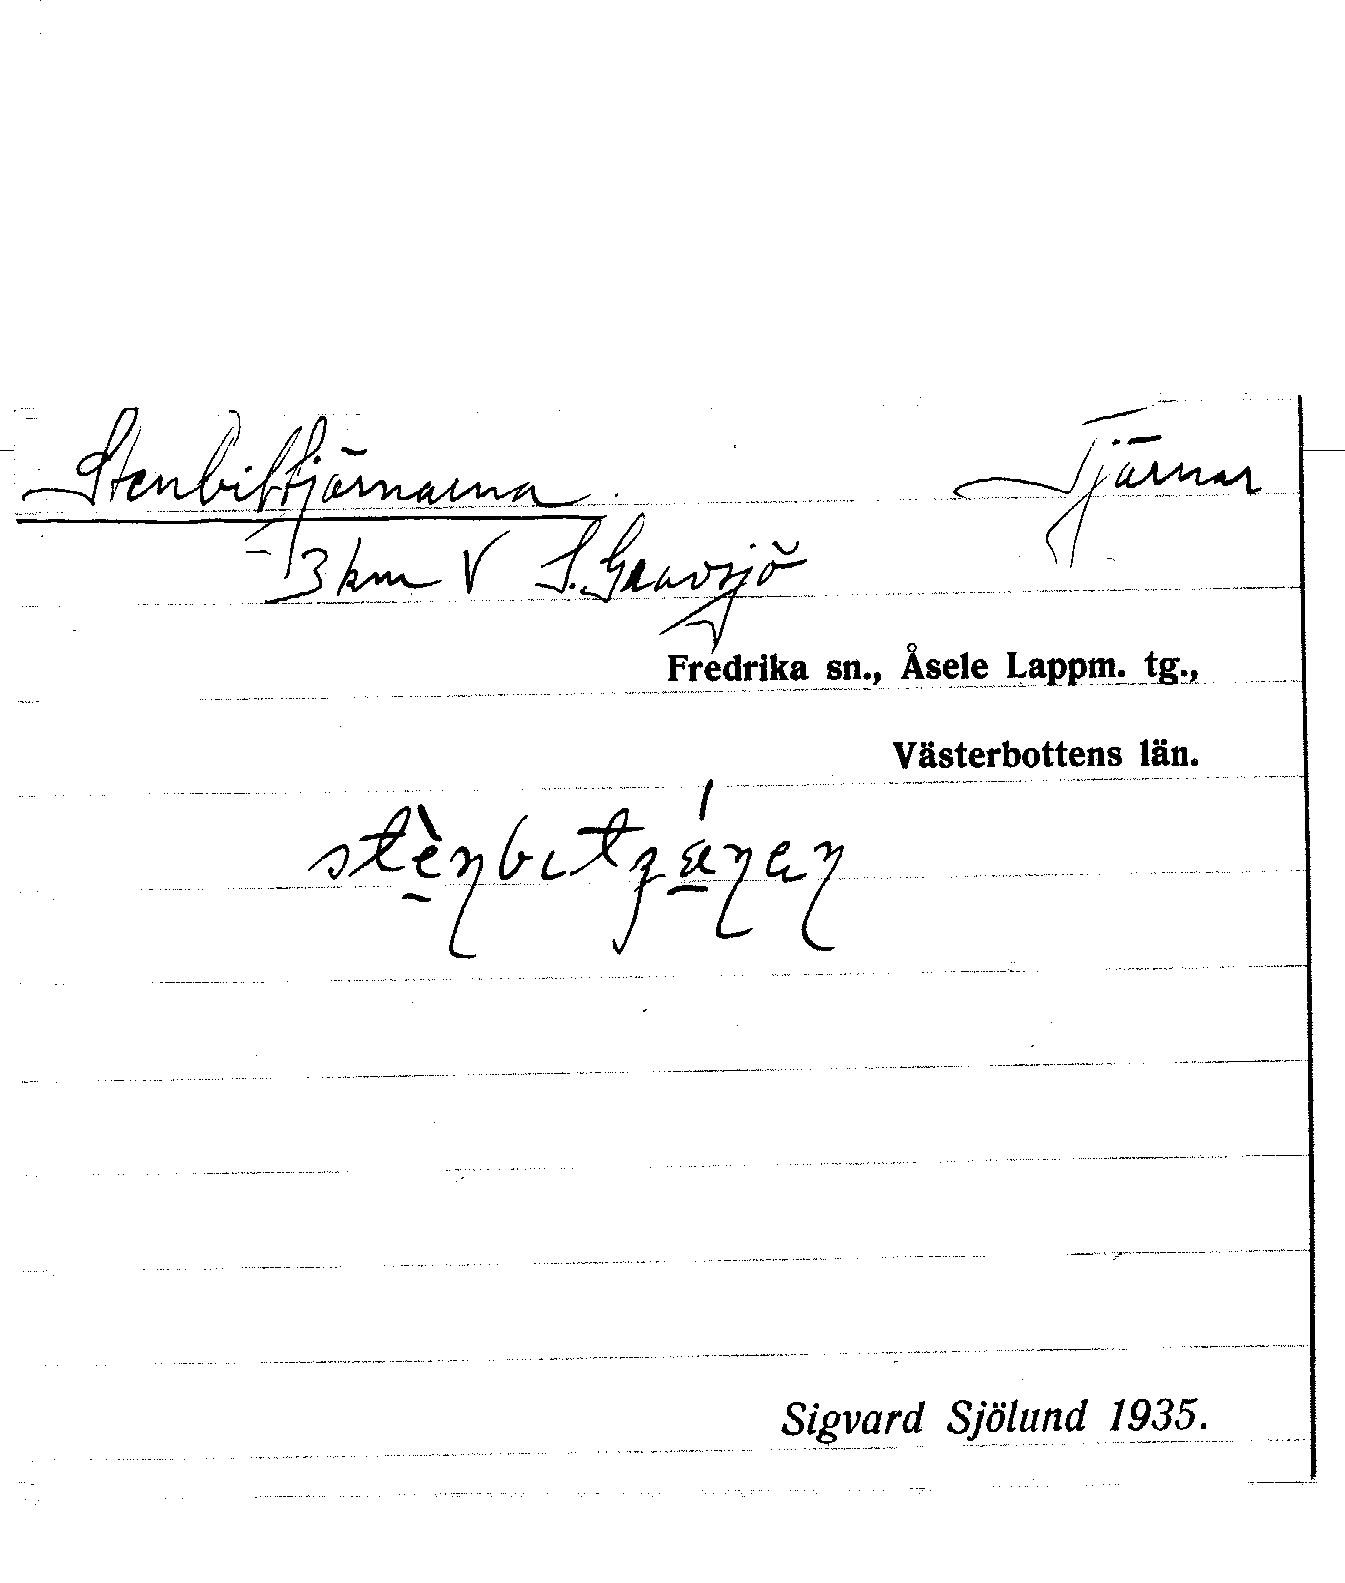 Stenbittjärnarna. Tjärnar
3 km V S. Gravsjö
Fredrika sn., Åsele Lappm. tg.,
Västerbottens län.
Sigvard Sjölund 1935.